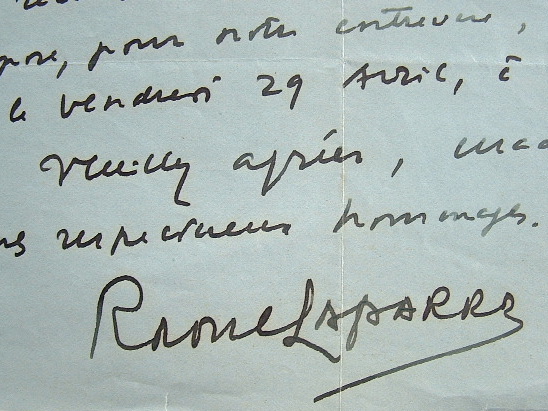 pose, pour notre entrevue,
le vendredi 29 Avril, à
Veuillez agréer, mad
mes respectueux hommages.
Raoul LAPARRA